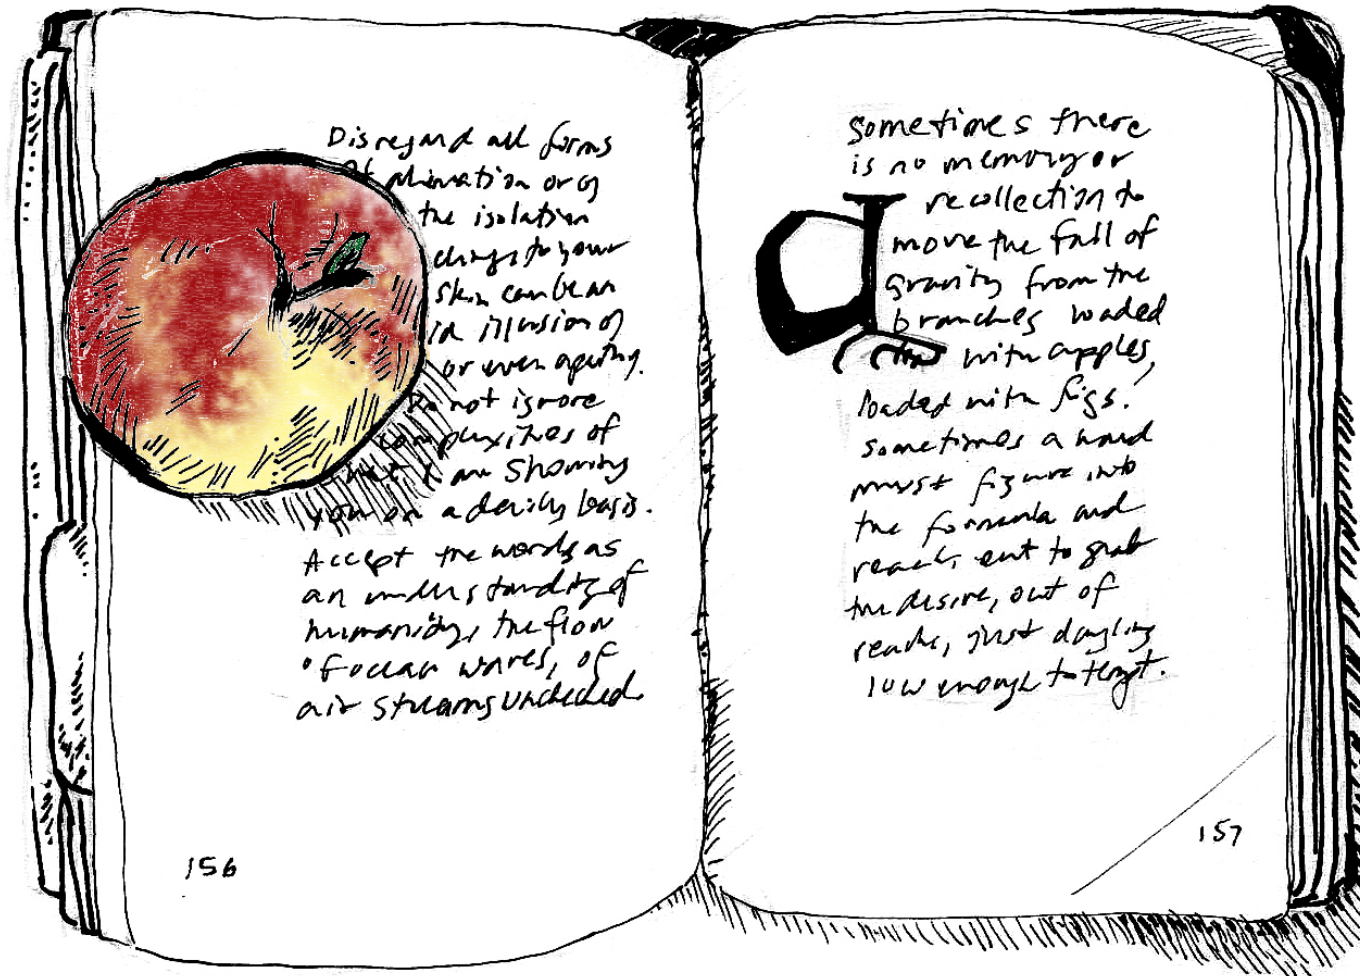 Disregard all forms
of alination or of
the isolation
clings to your
skin can be an
illusion of
or even apathy.
Do not ignore
complexities of
what I am showing
you on a daily basis.
Accept the words as
an understanding of
humanity, the flow
of ocean waves, of
air streams unchecked.
156
sometimes there
is no memory or
recollection to
move the fall of
gravity from the
branches loaded
with apples,
loaded with figs.
sometimes a hand
must figure into
the formula and
reach out to grab
the desire, out of
reach, just dangling
low enough to tempt.
157